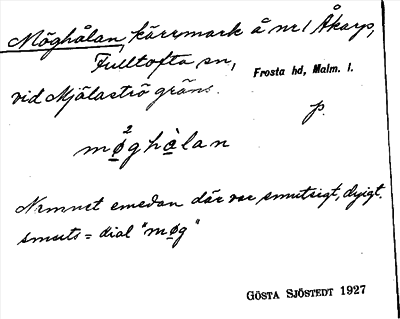 Möghålan, kärrmark å nr 1 Åkarp,
Fulltofta sn,
Frosta hd, Malm. l.
vid Mjälaströ gräns.
p.
2
møghàlan
Namnet emedan där var smutsigt, dyigt.
smuts = dial "møg"
GÖSTA SJÖSTEDT 1927